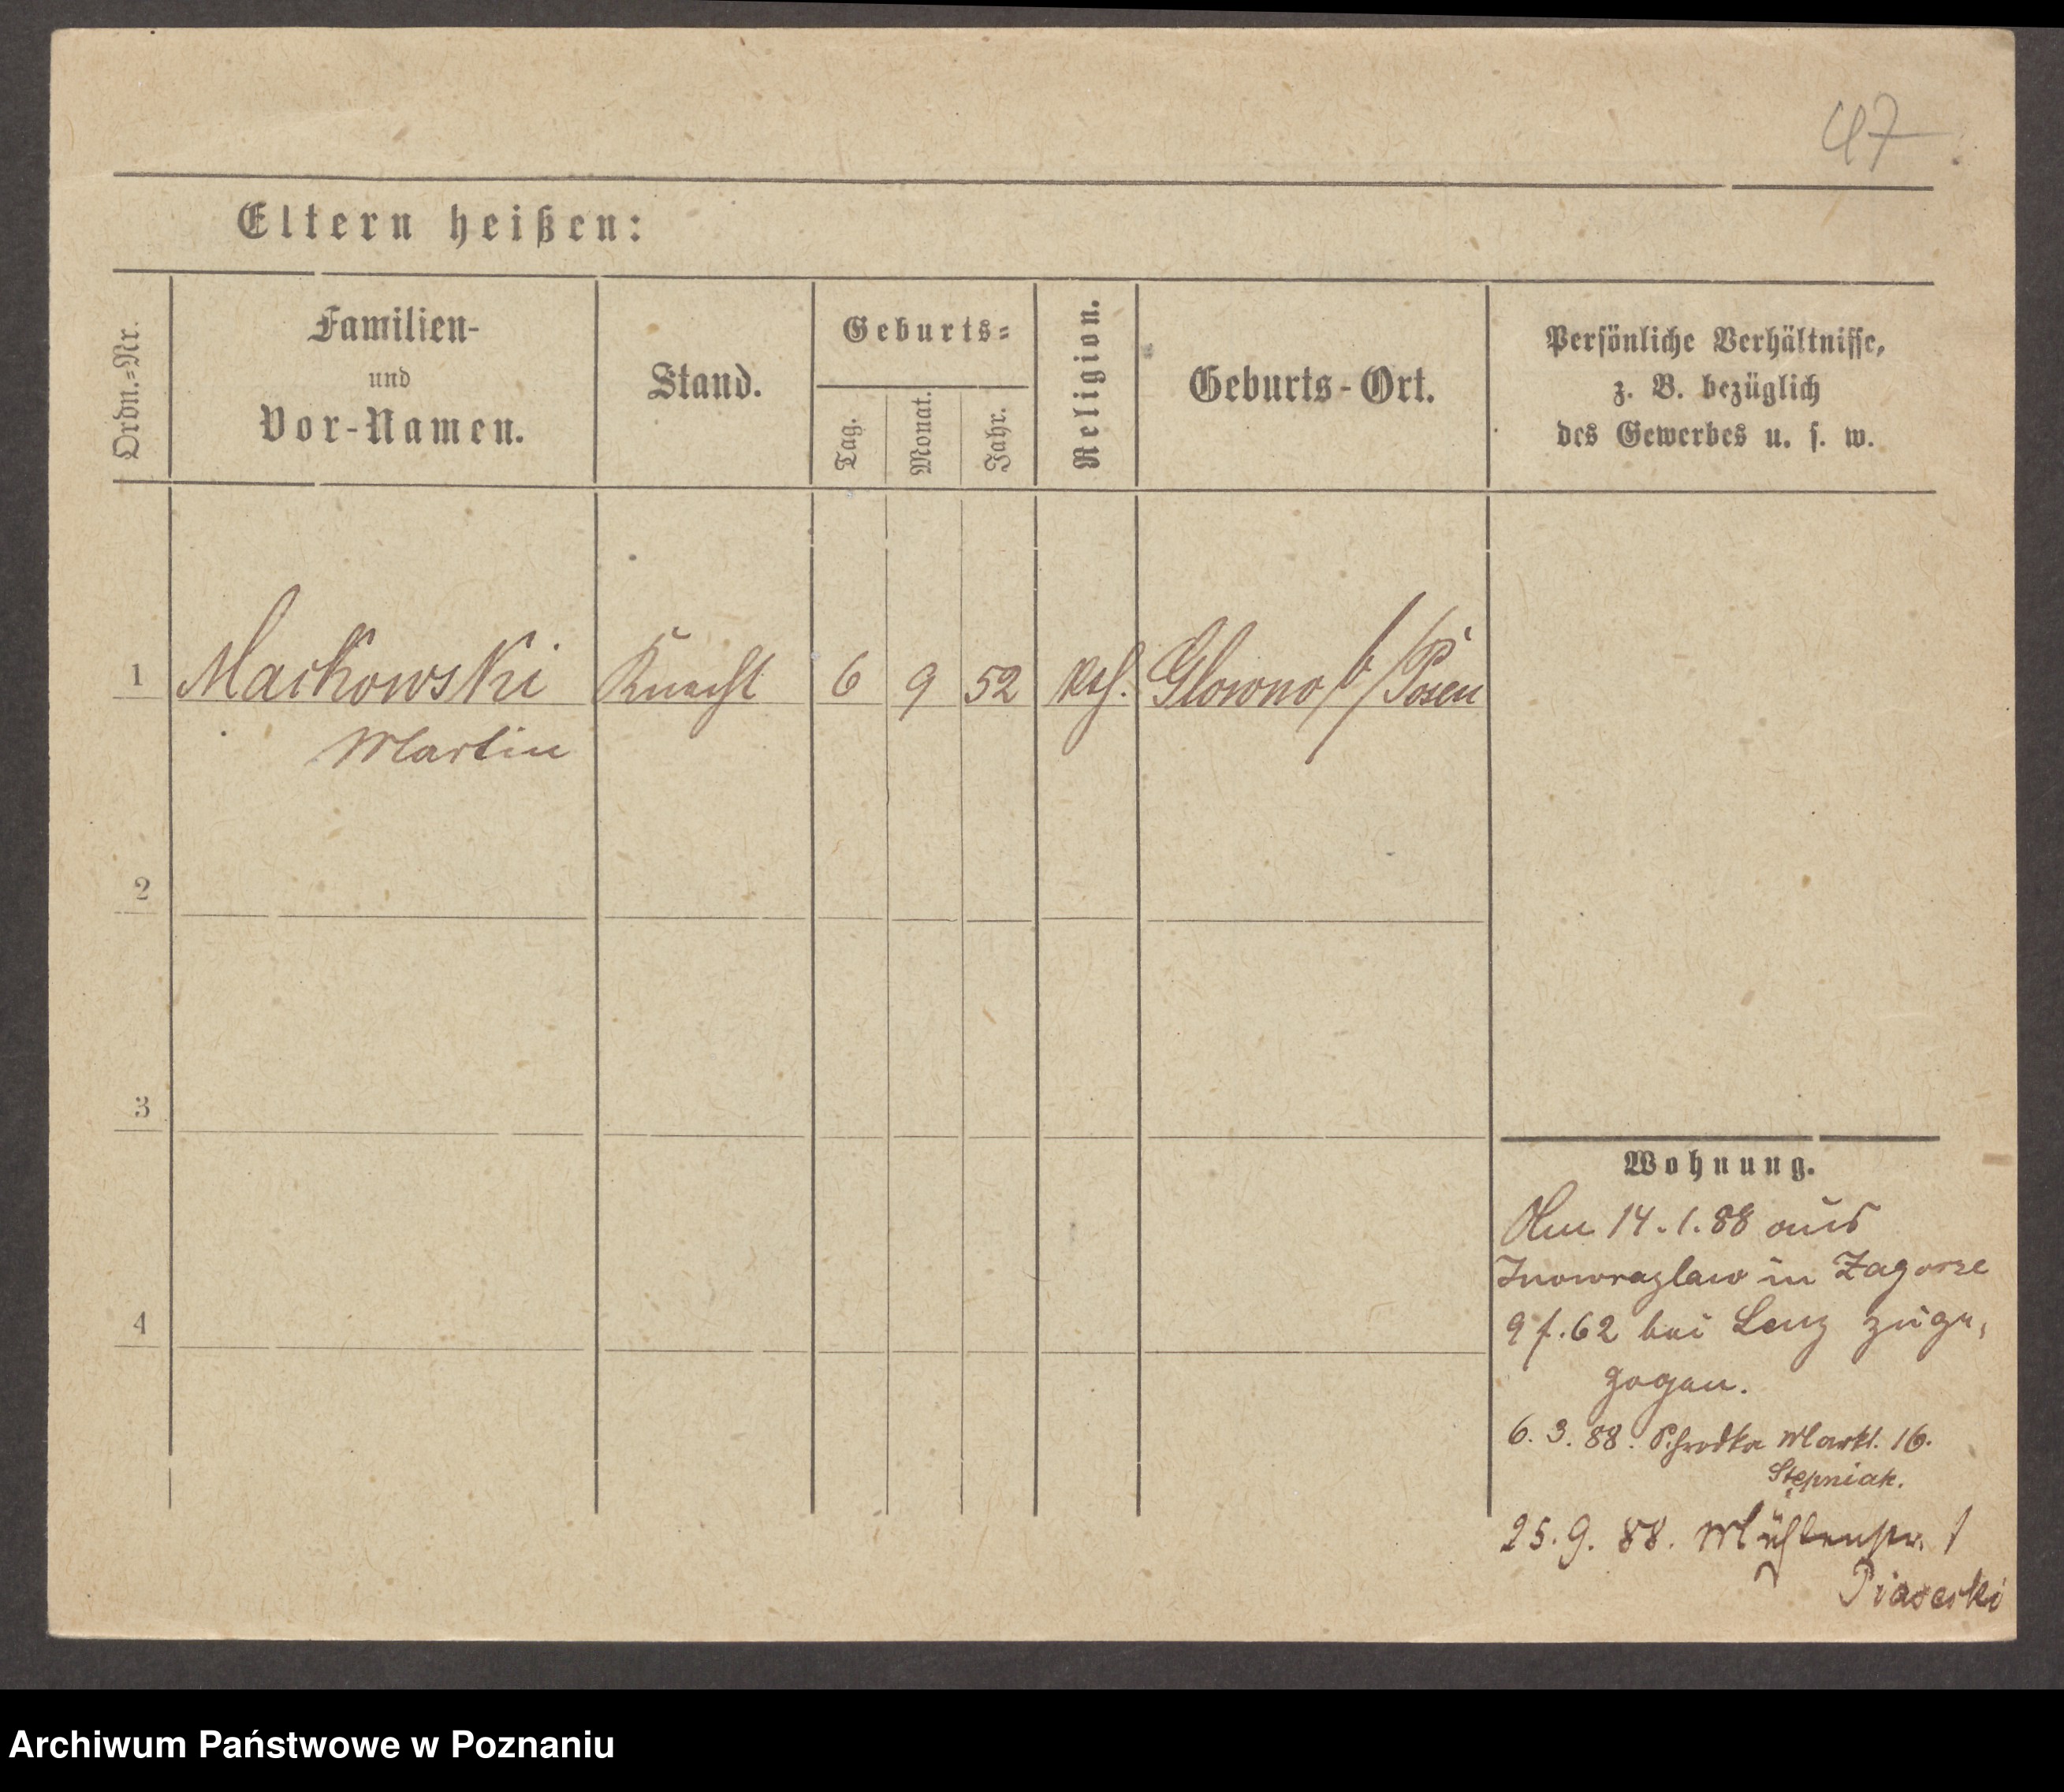 47
Eltern heißen:
Ordn.-Nr.
Familien-
und
Vor-Namen.
Stand.
Geburts-
Tag.
Monat.
Jahr.
Religion.
Geburts-Ort.
Persönliche Verhältnisse,
z. B. bezüglich
des Gewerbes u. s. w.
1 Maćkowski Knecht 6 9 52 kth. Glowno b/Posen
Martin
2
3
4
Wohnung.
Am 14.1.88 aus
Inowrazlaw in Zagorze
9 f. 62 bei Lenz zuge,
zogen.
6. 3. 88. Schrodka Markt. 16.
Stępniak.
25. 9. 88. Mühlenstr. 1
Piasecki
Archiwum Państwowe w Poznaniu